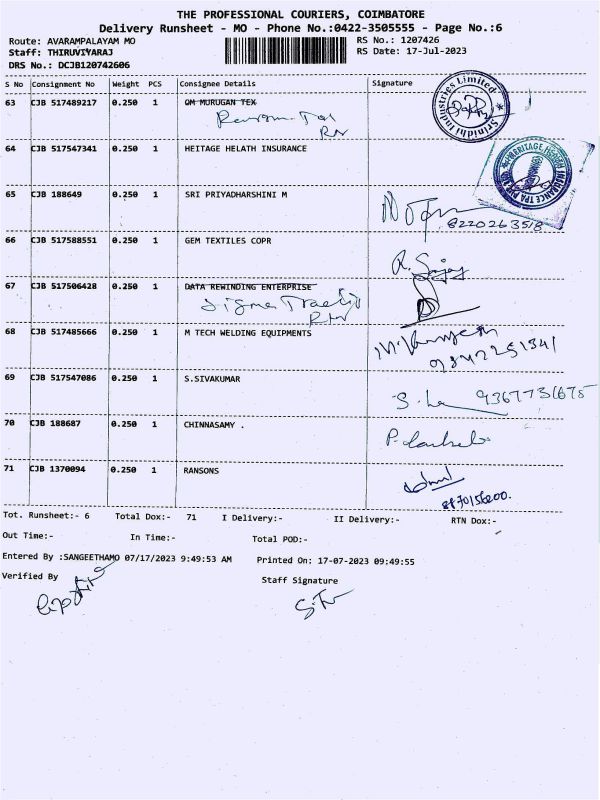 THE PROFESSIONAL COURIERS, COIMBATORE
Delivery Runsheet - MO - Phone No.:0422-3505555 - Page No.:6
Route: AVARAMPALAYAM MO RS No.: 1207426
Staff: THIRUVIYARAJ RS Date: 17-Jul-2023
DRS No.: DCJB120742606
S No Consignment No Weight PCS Consignee Details Signature
63 CJB 517489217 0.250 1 OM MURUGAN TEX
Srinidhi Industries Limited
64 CJB 517547341 0.250 1 HEITAGE HELATH INSURANCE
65 CJB 188649 0.250 1 SRI PRIYADHARSHINI M
8220263518
66 CJB 517588551 0.250 1 GEM TEXTILES COPR
R. Sajay
67 CJB 517506428 0.250 1 DATA REWINDING ENTERPRISE
68 CJB 517485666 0.250 1 M TECH WELDING EQUIPMENTS
69 CJB 517547086 0.250 1 S.SIVAKUMAR
9367731675
70 CJB 188687 0.250 1 CHINNASAMY .
71 CJB 1370094 0.250 1 RANSONS
Tot. Runsheet:- 6 Total Dox:- 71 I Delivery:- II Delivery:- RTN Dox:-
Out Time:- In Time:- Total POD:-
Entered By :SANGEETHAMO 07/17/2023 9:49:53 AM Printed On: 17-07-2023 09:49:55
Verified By Staff Signature